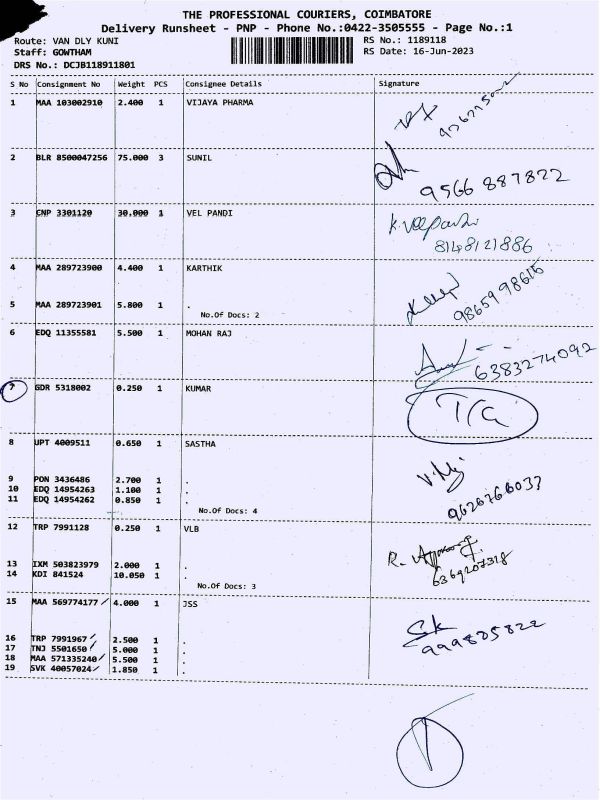 THE PROFESSIONAL COURIERS, COIMBATORE
Delivery Runsheet - PNP - Phone No.:0422-3505555 - Page No.:1
Route: VAN DLY KUNI RS No.: 1189118
Staff: GOWTHAM RS Date: 16-Jun-2023
DRS No.: DCJB118911801
S No Consignment No Weight PCS Consignee Details Signature
1 MAA 103002910 2.400 1 VIJAYA PHARMA
2 BLR 8500047256 75.000 3 SUNIL
9566 887822
3 CNP 3301120 30.000 1 VEL PANDI K.velpandi
8148121886
4 MAA 289723900 4.400 1 KARTHIK
98659 98615
5 MAA 289723901 5.800 1 .
No.Of Docs: 2
6 EDQ 11355581 5.500 1 MOHAN RAJ
6383274092
7 GDR 5318002 0.250 1 KUMAR T/G
8 UPT 4009511 0.650 1 SASTHA
9 PON 3436486 2.700 1 .
10 EDQ 14954263 1.100 1 .
11 EDQ 14954262 0.850 1 .
No.Of Docs: 4
12 TRP 7991128 0.250 1 VLB
6369207328
13 IXM 503823979 2.000 1 .
14 KDI 841524 10.050 1 .
No.Of Docs: 3
15 MAA 569774177 4.000 1 JSS
999885822
16 TRP 7991967 2.500 1 .
17 TNJ 5501650 5.000 1 .
18 MAA 571335240 5.500 1 .
19 SVK 40057024 1.850 1 .